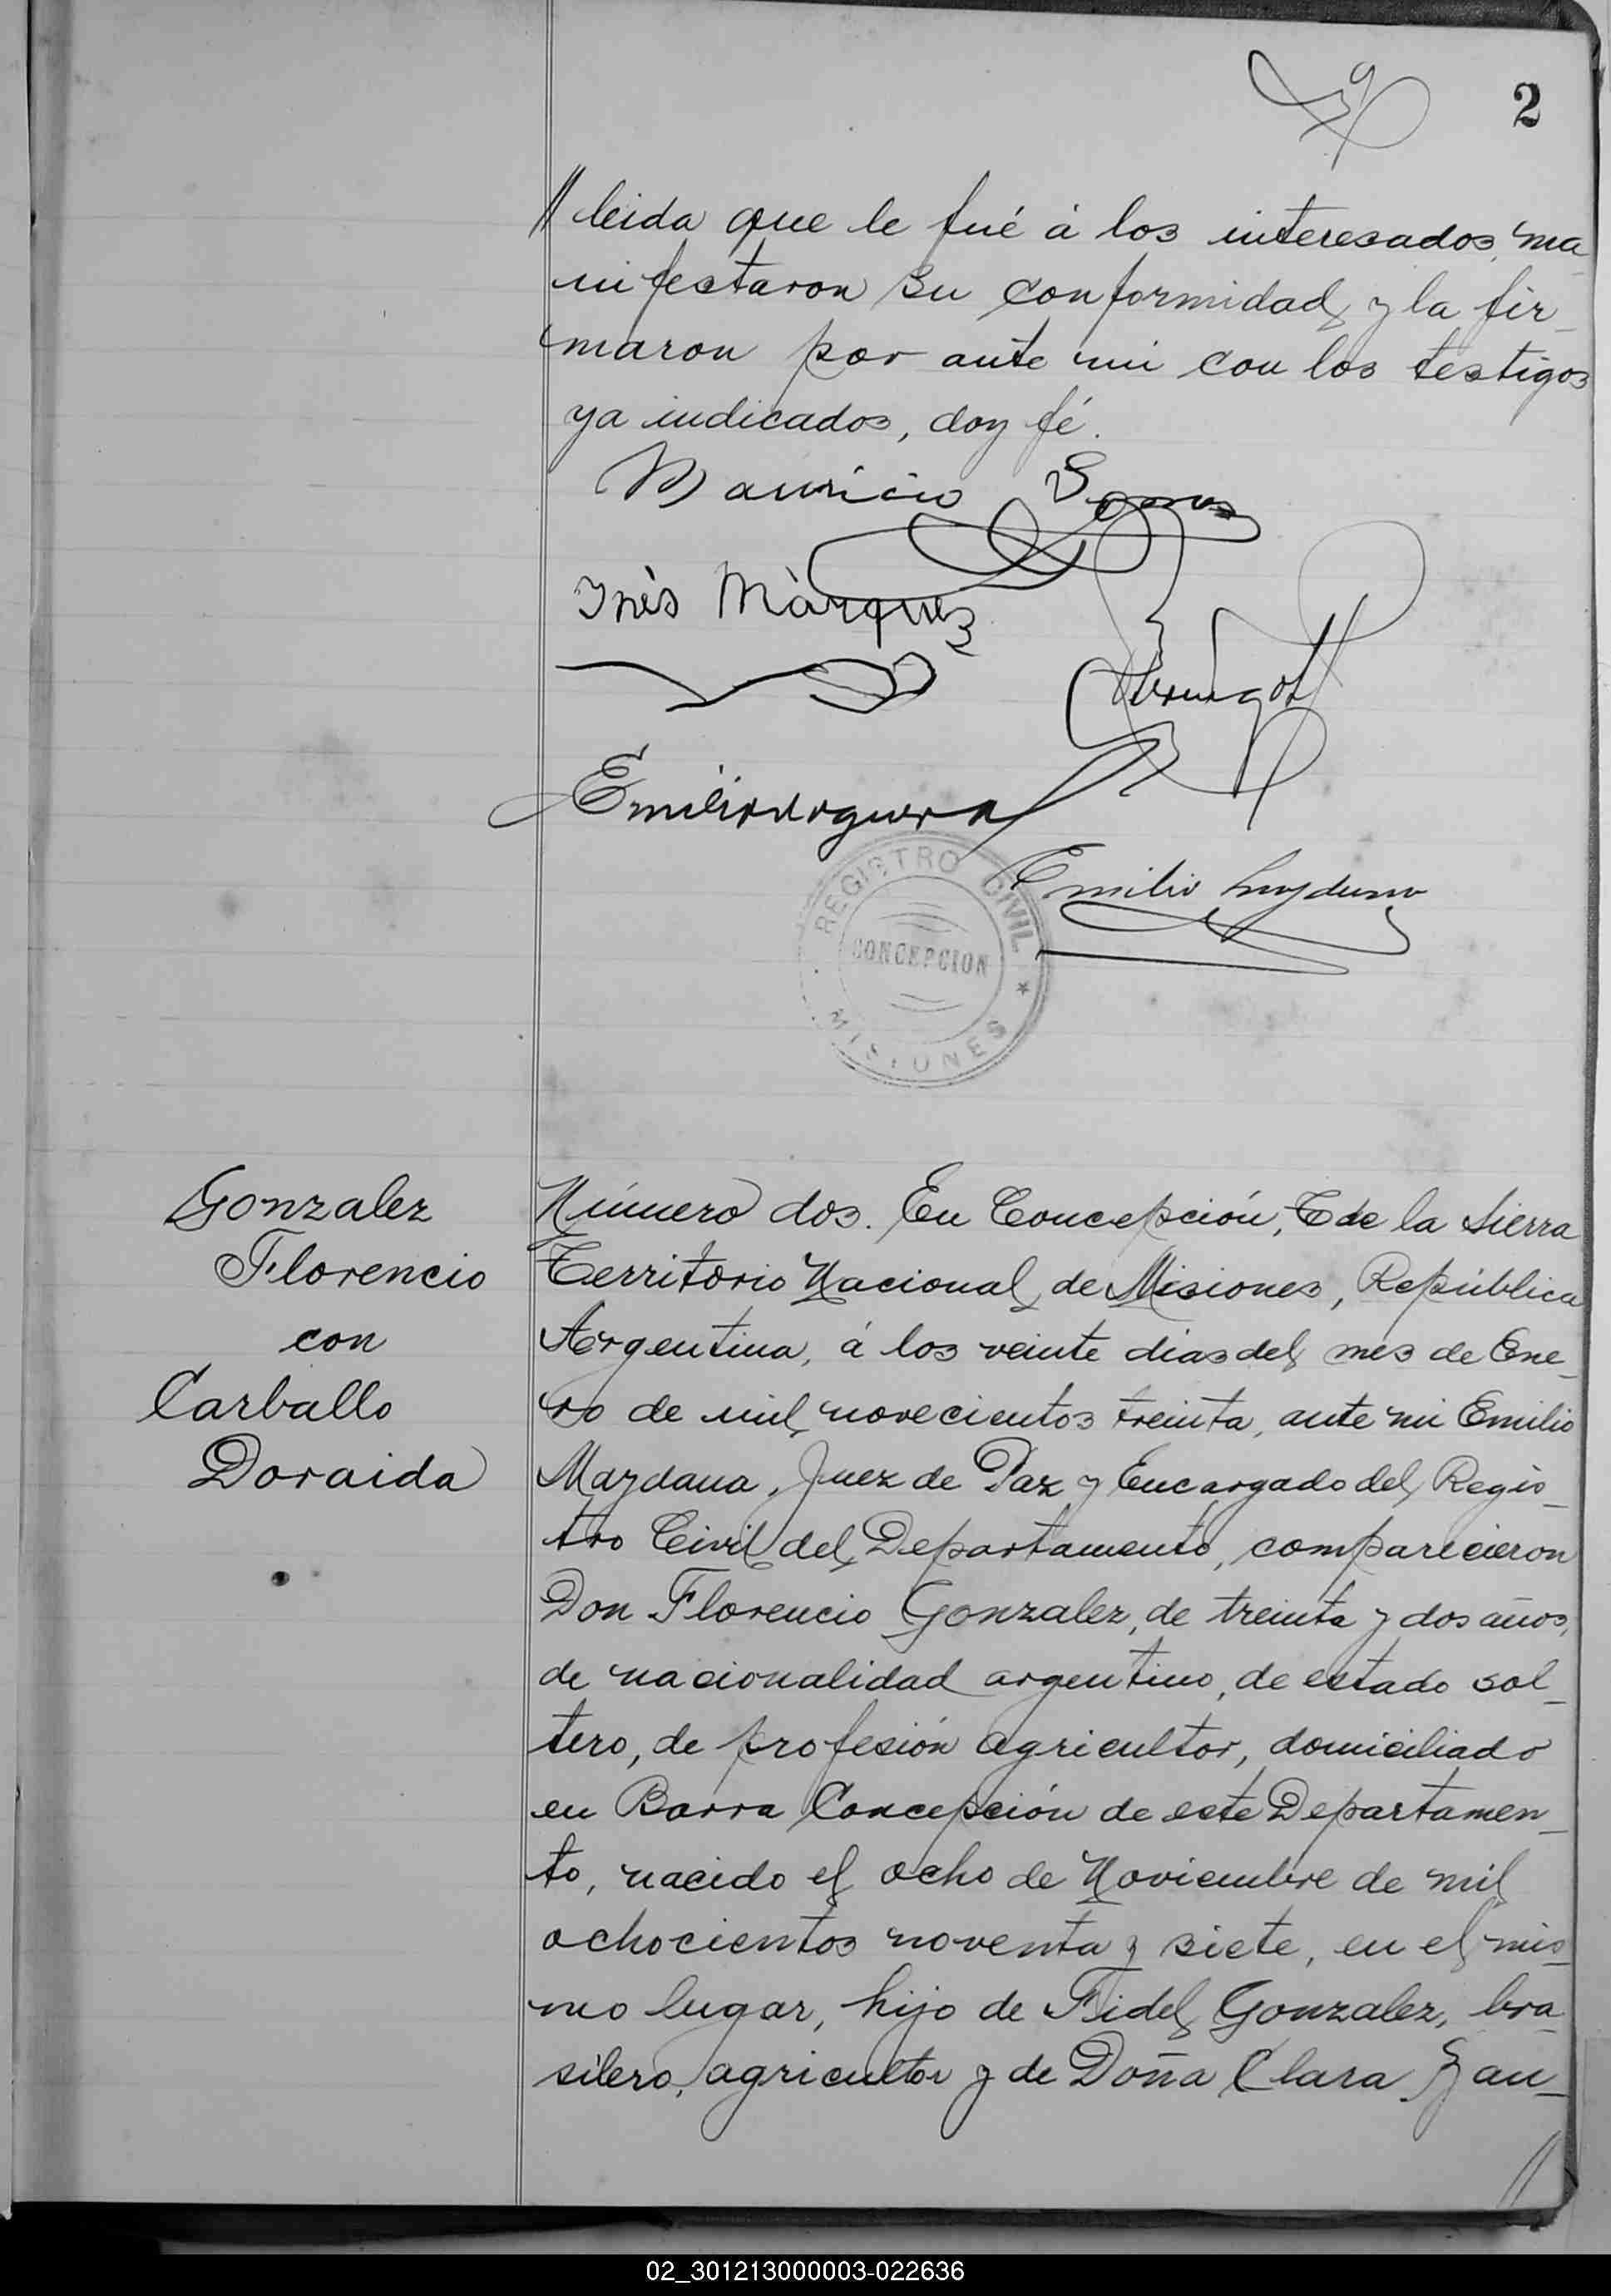 2
// leida que le fué á los interesados, ma
nifestaron su conformidad y la fir_
maron por ante mi con los testigos
ya indicados, doy fé.
Mauricio
Inès Màrquez
Emilio
REGISTRO CIVIL
CONCEPCION
MISIONES
Emilio
Gonzalez
Florencio
con
Carballo
Doraida
Número dos. En Concepción, de la Sierra
Territorio Nacional de Misiones, República
Argentina, á los veinte dias del mes de Ene_
ro de mil novecientos treinta, ante mi Emilio
Mazdana, Juez de Paz y Encargado del Regis_
tro Civil del Departamento, comparecieron
Don Florencio Gonzalez, de treinta y dos años,
de nacionalidad argentino, de estado sol_
tero, de profesión agricultor, domiciliado
en Barra Concepción de este Departamen_
to, nacido el ocho de Noviembre de mil
ochocientos noventa y siete, en el mis_
mo lugar, hijo de Fidel Gonzalez, bra_
silero, agricultor y de Doña Clara
//
02_301213000003-022636